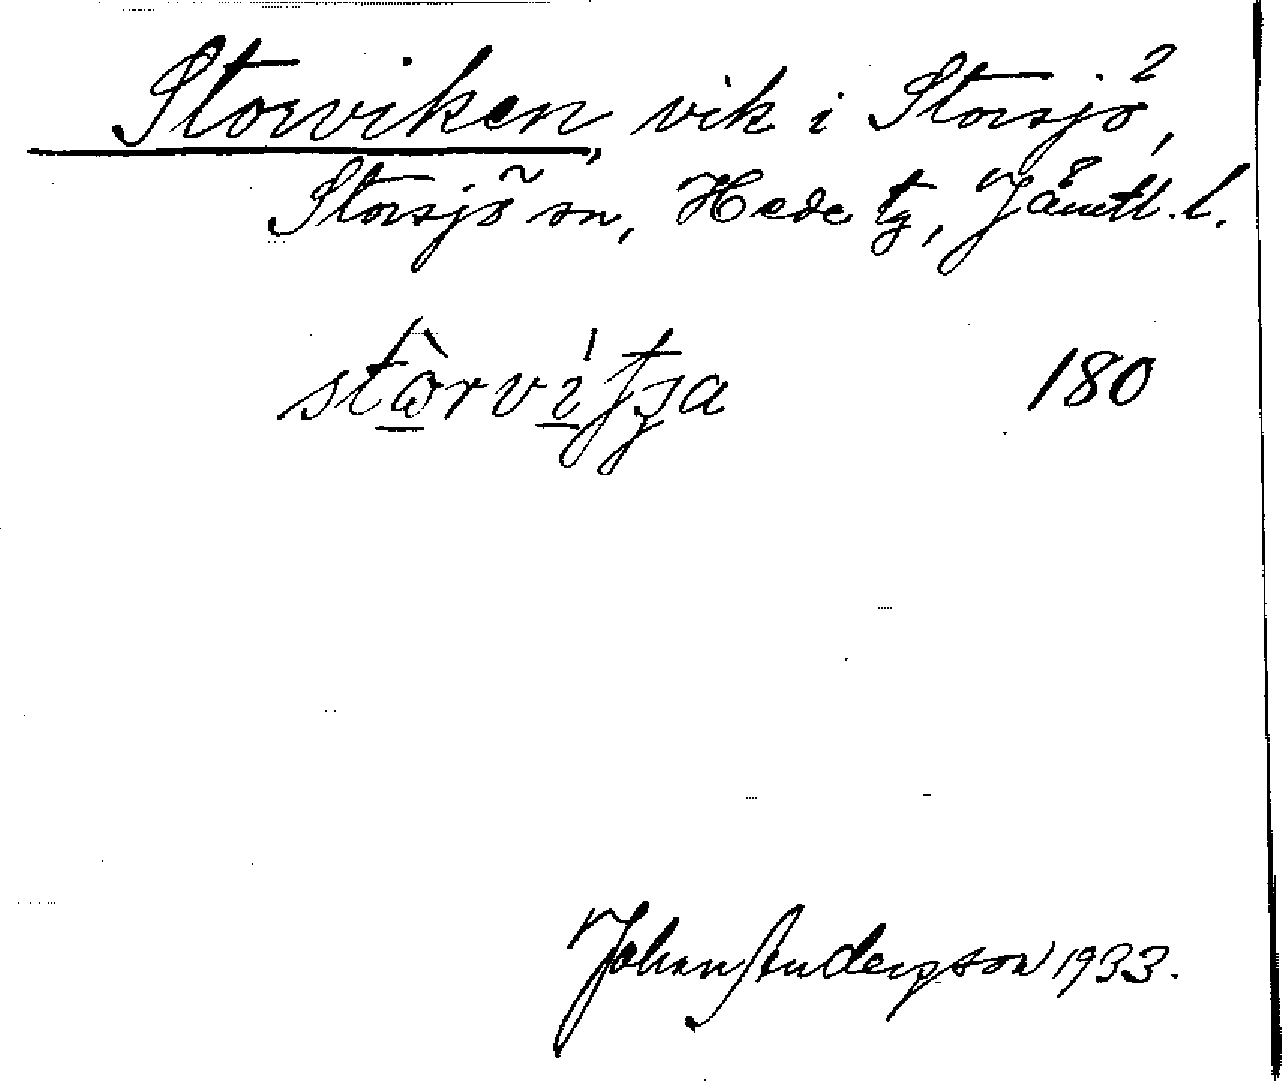 Storviken, vik i Storsjö,
Storsjö sn, Hede tg, Jämtl. l.
180
Johan Anderson 1933.